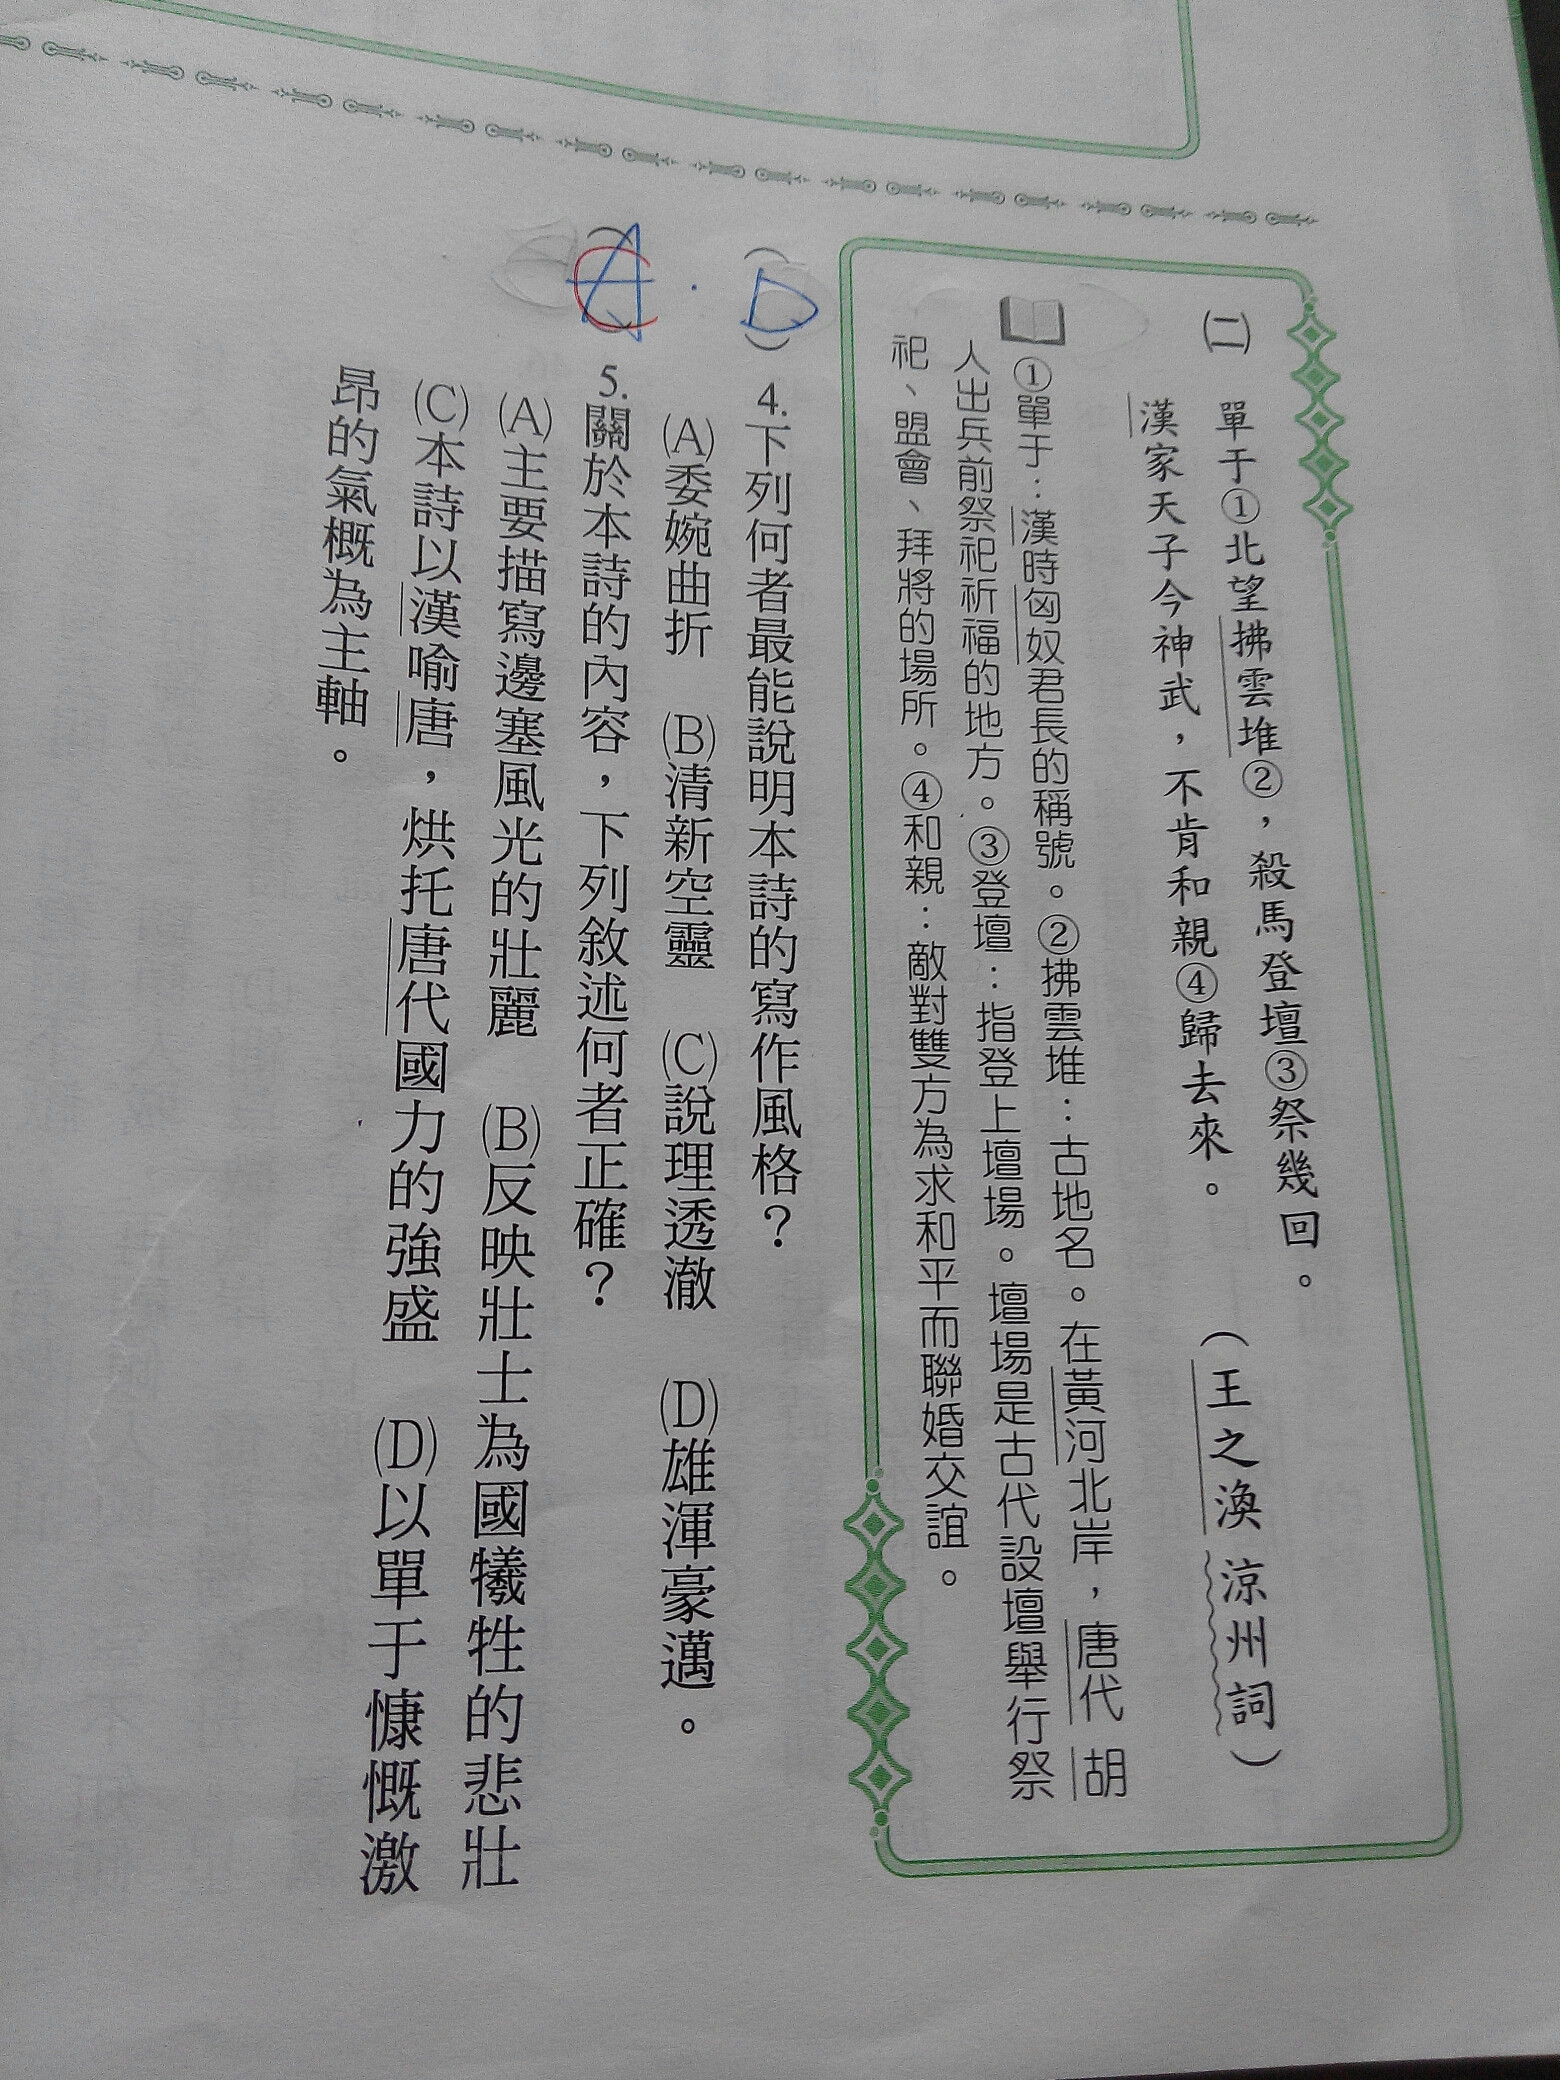 ㈡ 單于①北望拂雲堆②，殺馬登壇③祭幾回。
漢家天子今神武，不肯和親④歸去來。
（王之渙 涼州詞）
①單于：漢時匈奴君長的稱號。②拂雲堆：古地名。在黃河北岸，唐代 胡
人出兵前祭祀祈福的地方。③登壇：指登上壇場。壇場是古代設壇舉行祭
祀、盟會、拜將的場所。④和親：敵對雙方為求和平而聯婚交誼。
（D）4.下列何者最能說明本詩的寫作風格？
(A)委婉曲折 (B)清新空靈 (C)說理透澈 (D)雄渾豪邁。
（A C）5.關於本詩的內容，下列敘述何者正確？
(A)主要描寫邊塞風光的壯麗 (B)反映壯士為國犧牲的悲壯
(C)本詩以漢喻唐，烘托唐代國力的強盛 (D)以單于慷慨激
昂的氣概為主軸。